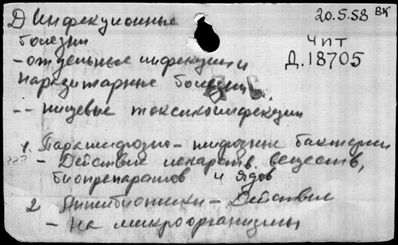 Д Инфекционные
20.5.58 ВК
болезни
ЧПТ
Д.18705
- отдельные инфекции и
паразитарные болезни
- - пищевые токсикоинфекции
1. Паратифозно-тифозные бактерии
- Действие лекарств. веществ,
биопрепаратов и ядов
2 Антибиотики - Действие
- на микроорганизмы